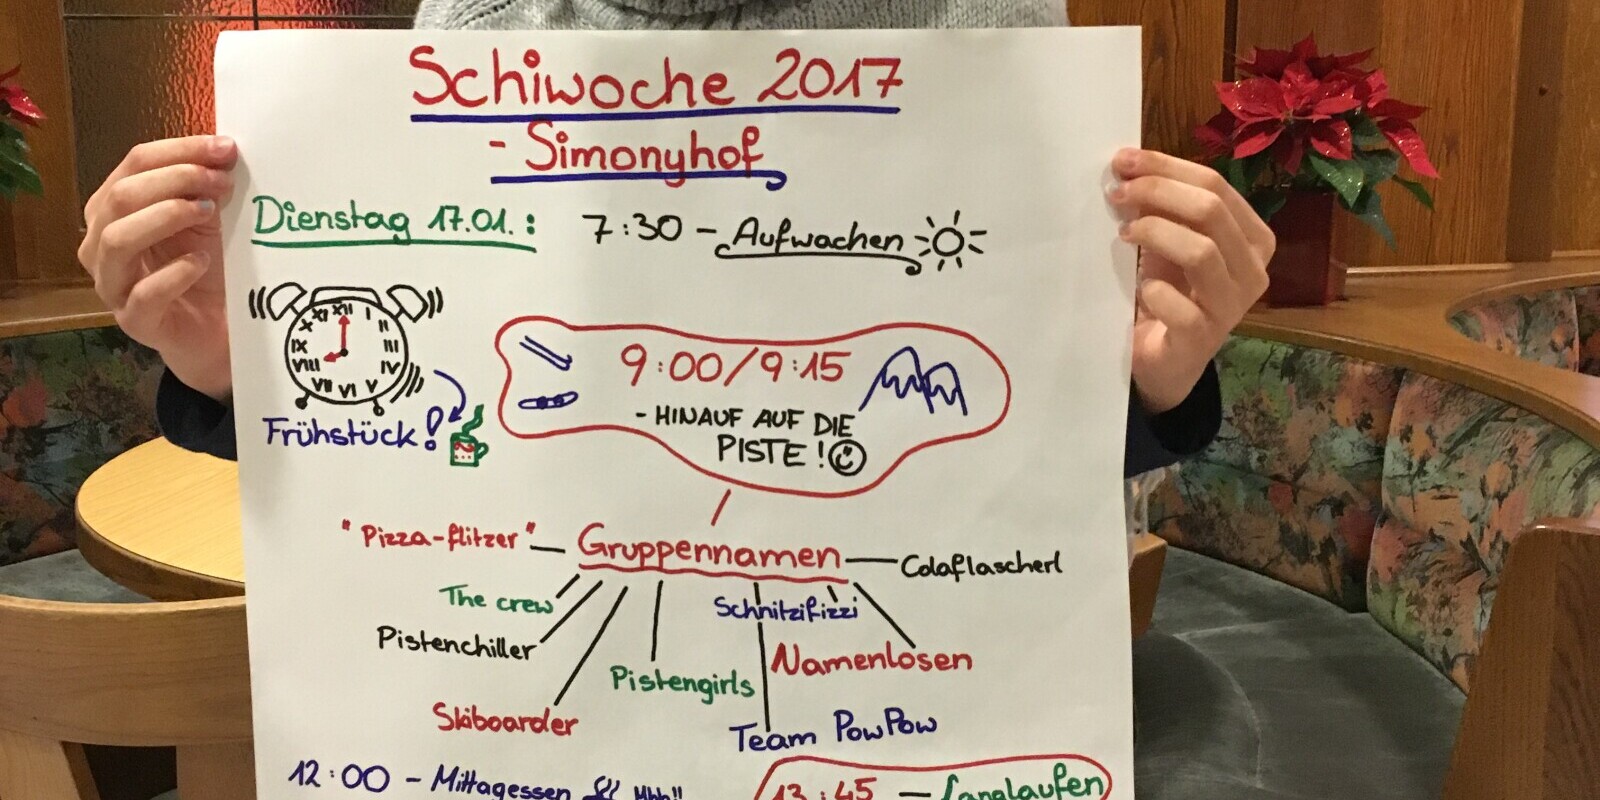 Schiwoche 2017
- Simonyhof
Dienstag 17.01.: 7:30 - Aufwachen
XII I II III IV V VI VII VIII IX X XI
Frühstück!
9:00/9:15
- HINAUF AUF DIE
PISTE!
"Pizza-flitzer"
Gruppennamen
Colaflascherl
The crew
Schnitzifizzi
Pistenchiller
Namenlosen
Pistengirls
Skiboarder
Team PowPow
12:00 - Mittagessen Mhh!!
13:45 - Langlaufen